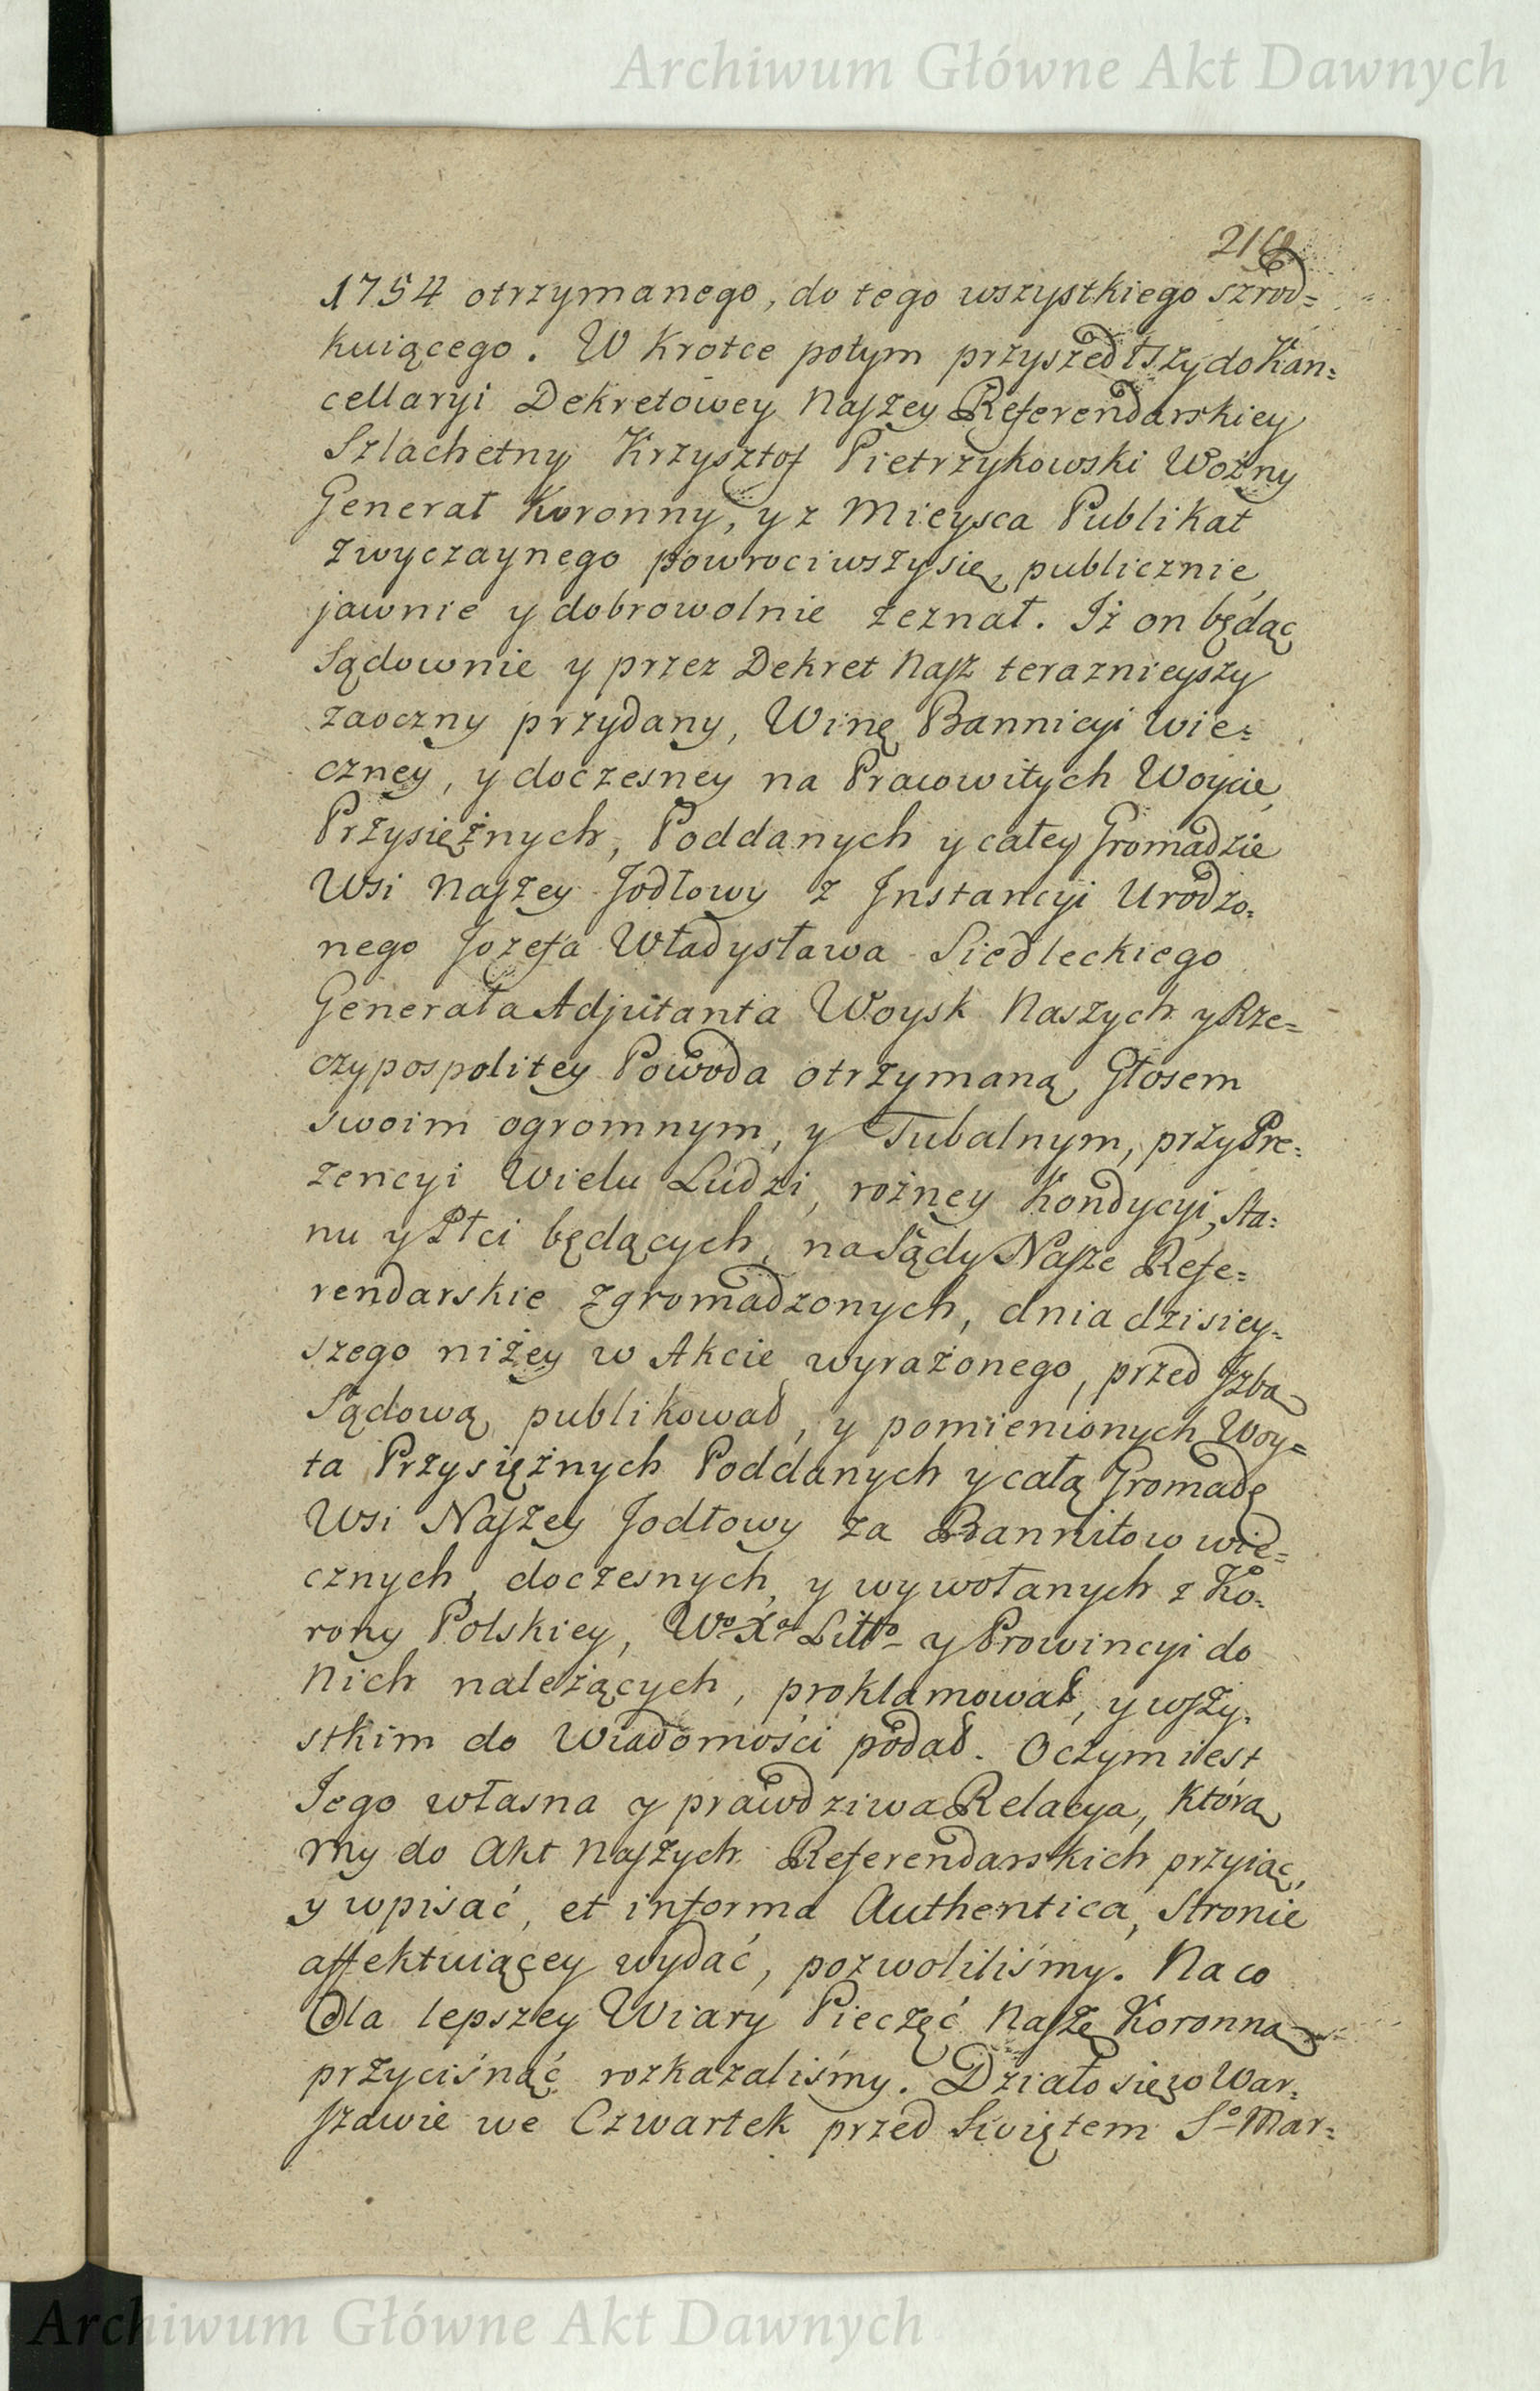 Archiwum Główne Akt Dawnych
1754 otrzymanego, do tego wszystkiego szrod=
kuiącego. W krotce potym przyszedłszy do Kan=
cellaryi Dekretowey Naszey Referendarskiey
Szlachetny Krzysztof Pietrzykowski Wożny
Generał Koronny, y z Mieysca Publikat
zwyczaynego powrociwszy się, publicznie,
jawnie y dobrowolnie zeznał. Iż on będąc
Sądownie y przez Dekret Nasz teraznieyszy
zaoczny przydany, Winę Bannicyi wie=
czney, y doczesney na Pracowitych Woycie,
Przysiężnych, Poddanych y całey Gromadzie
Wsi Naszey Jodłowy z Instancyi Urodzo=
nego Jozefa Władysława Siedleckiego
Generała Adjutanta Woysk Naszych y Rze=
czypospolitey Powoda otrzymaną, Głosem
swoim ogromnym, y Tubalnym, przy Pre=
zencyi Wielu Ludzi, rożney Kondycyi, Sta=
nu y Płci będących, na Sądy Nasze Refe=
rendarskie zgromadzonych, dnia dzisiey=
szego niżey w Akcie wyrażonego, przed Izbą
Sądową publikował, y pomienionych Woy=
ta Przysiężnych Poddanych y całą Gromadę
Wsi Naszey Jodłowy za Bannitow wie=
cznych, doczesnych, y wywołanych z Ko=
rony Polskiey, Wo Xa Litto y Prowincyi do
Nich należących, proklamował, y wszy=
stkim do Wiadomości podał. O czym iest
Jego własna y prawdziwa Relacya, którą
my do Akt Naszych Referendarskich przyiąć,
y wpisać, et in forma Authentica, Stronie
affektuiącey wydać, pozwoliliśmy. Na co
dla lepszey Wiary Pieczęć Naszę Koronną
przyciśnąć rozkazaliśmy. Działo się w War=
szawie we Czwartek przed Swiętem So Mar=
Archiwum Główne Akt Dawnych